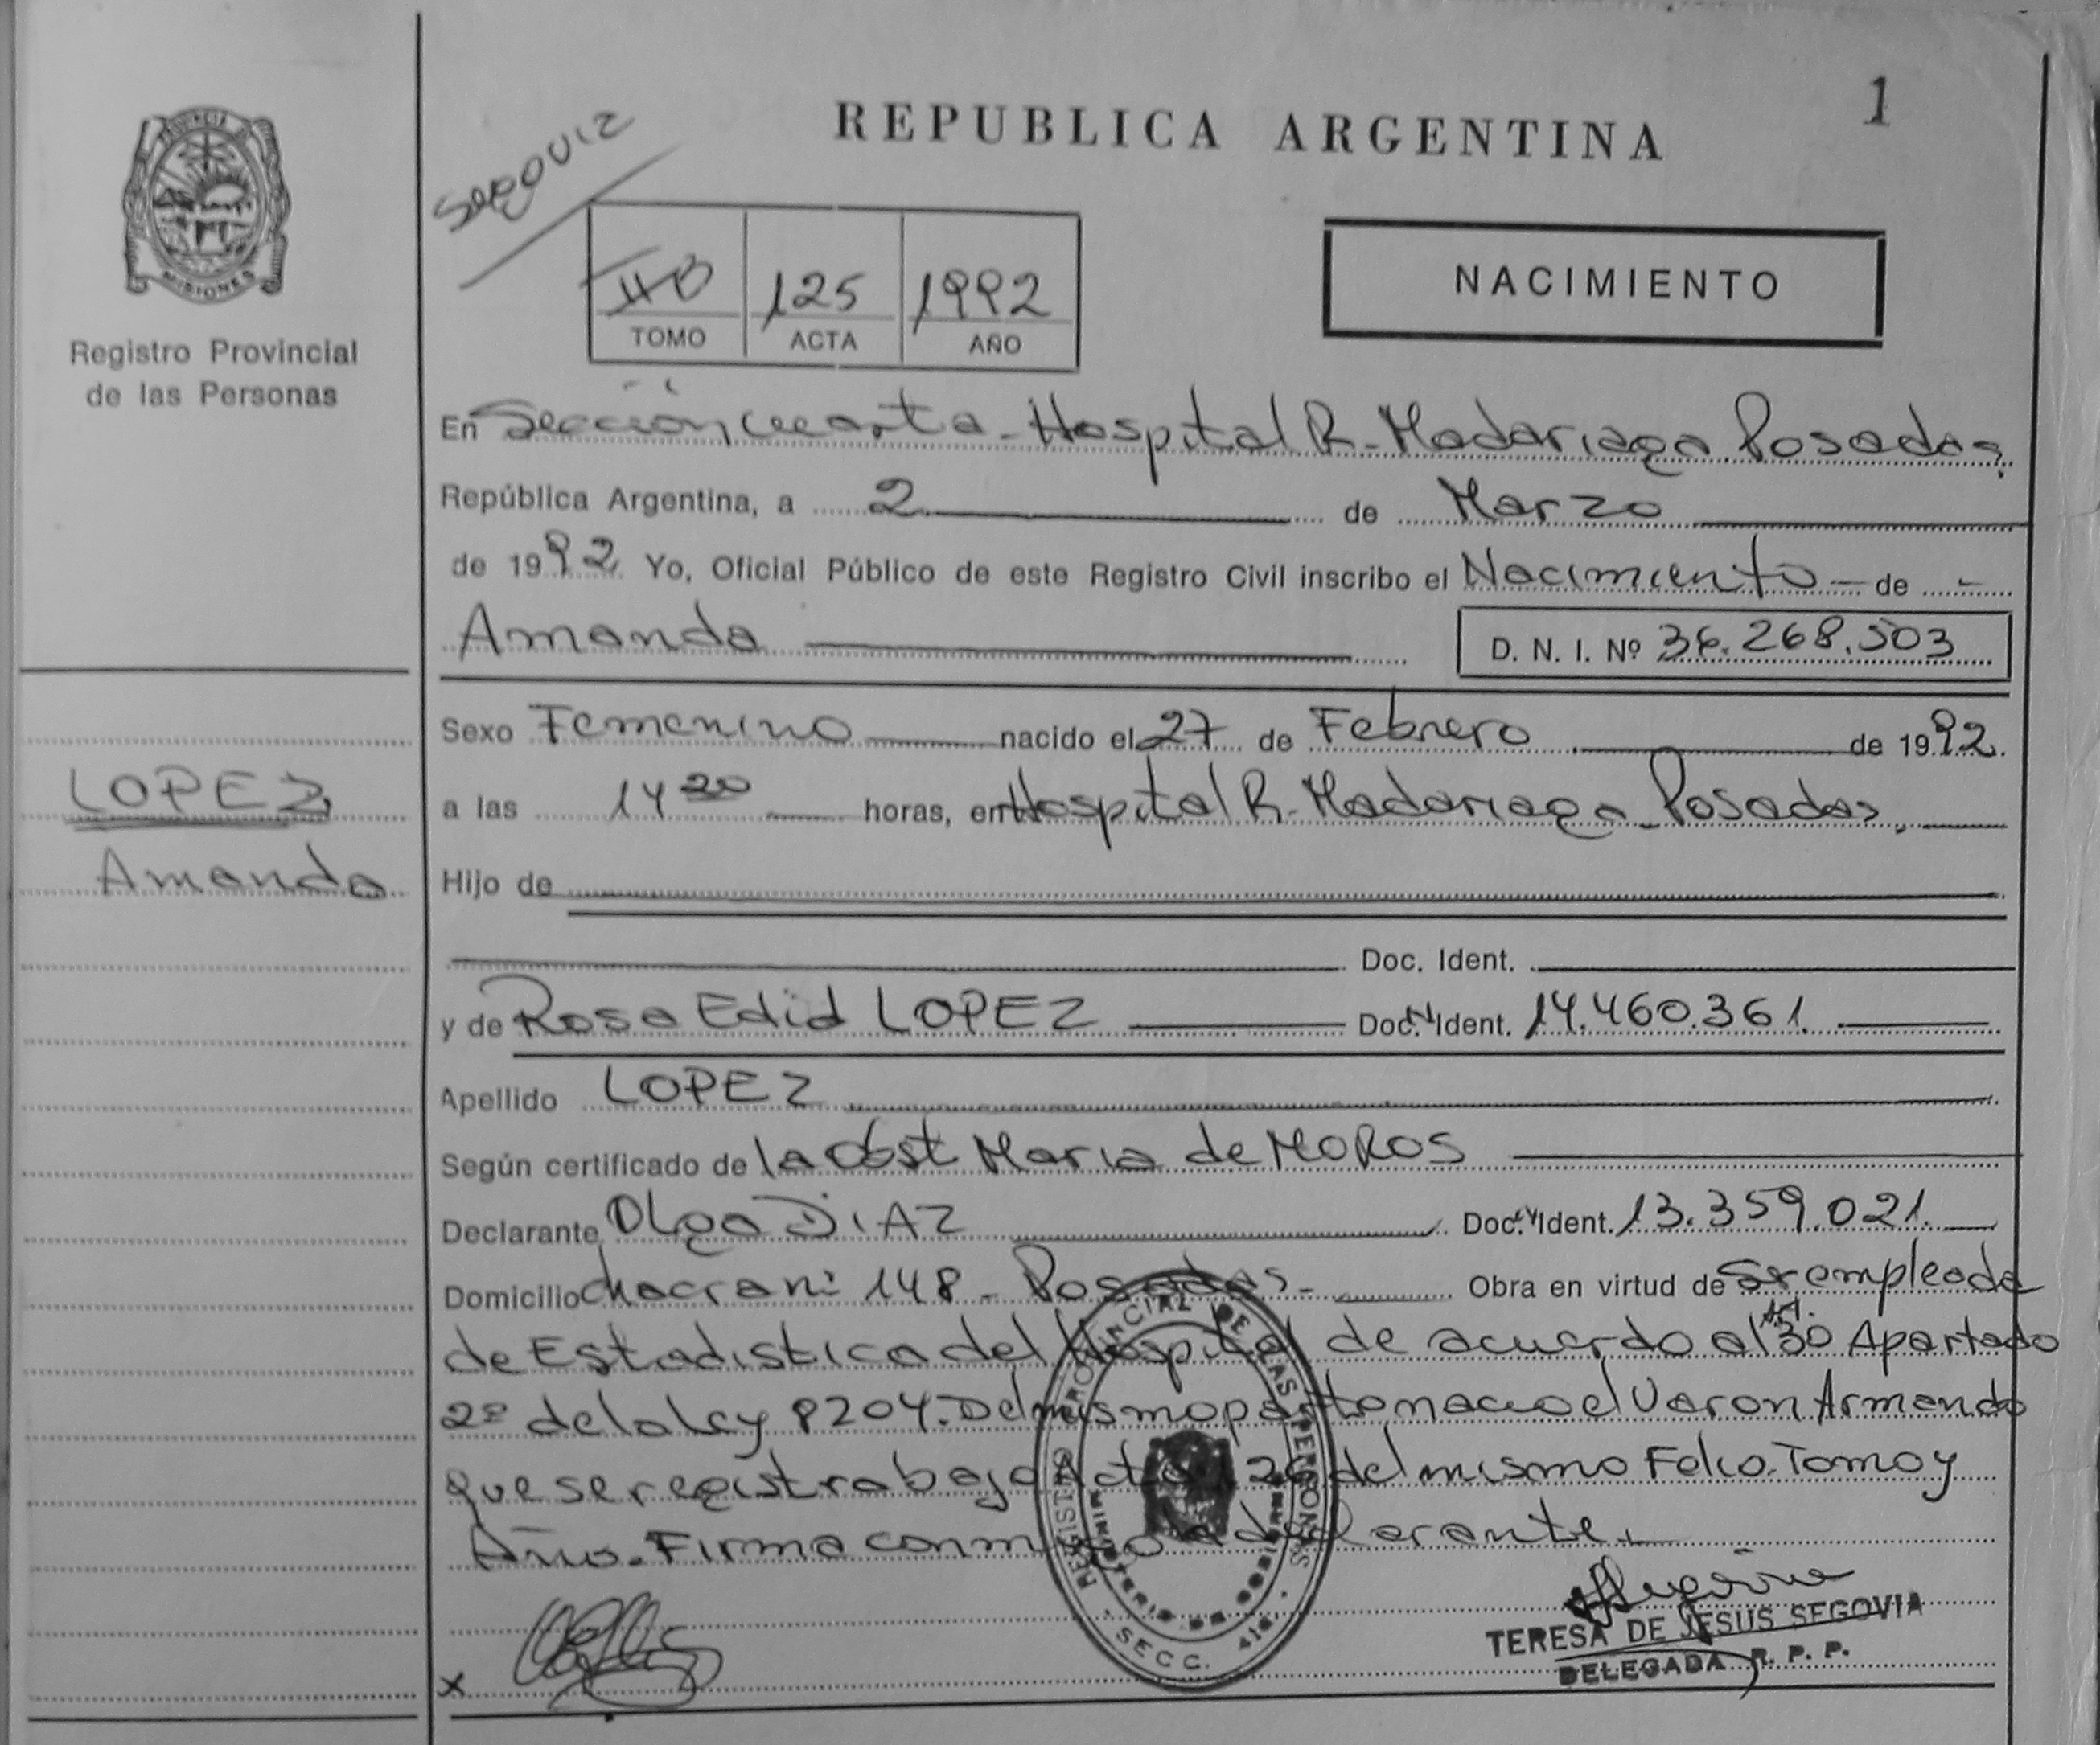 REPUBLICA ARGENTINA
1
PROVINCIA
MISIONES
Registro Provincial
de las Personas
125 1992
TOMO ACTA AÑO
NACIMIENTO
En Sección cuarta - Hospital R. Madariaga Posadas,
República Argentina, a 2 de Marzo
de 1992 Yo, Oficial Público de este Registro Civil inscribo el Nacimiento de
Amanda D. N. I. Nº 36.268.503
Sexo Femenino nacido el 27 de Febrero de 1992.
a las 14 20 horas, en Hospital R. Madariaga - Posadas.
LOPEZ
Amanda
Hijo de
Doc. Ident.
y de Rosa Edid LOPEZ Doc. Ident. 14.460.361.
Apellido LOPEZ
Según certificado de la Obst Maria de MOROS
Declarante Olga DIAZ Doc. Ident. 13.359.021.
Domicilio chacra nº 148 - Posadas - Obra en virtud de ser empleada
de Estadistica del Hospital de acuerdo al Art. 30 Apartado
2º de la ley 8204. Del mismo parto nacio el Varon Armando
que se registra bajo Acta 126 del mismo Folio. Tomo y
Año. Firma conmigo la declarante.
REGISTRO PROVINCIAL DE LAS PERSONAS
MINISTERIO DE GOBIERNO
SECC. 4ta.
TERESA DE JESUS SEGOVIA
DELEGADA R. P. P.
x